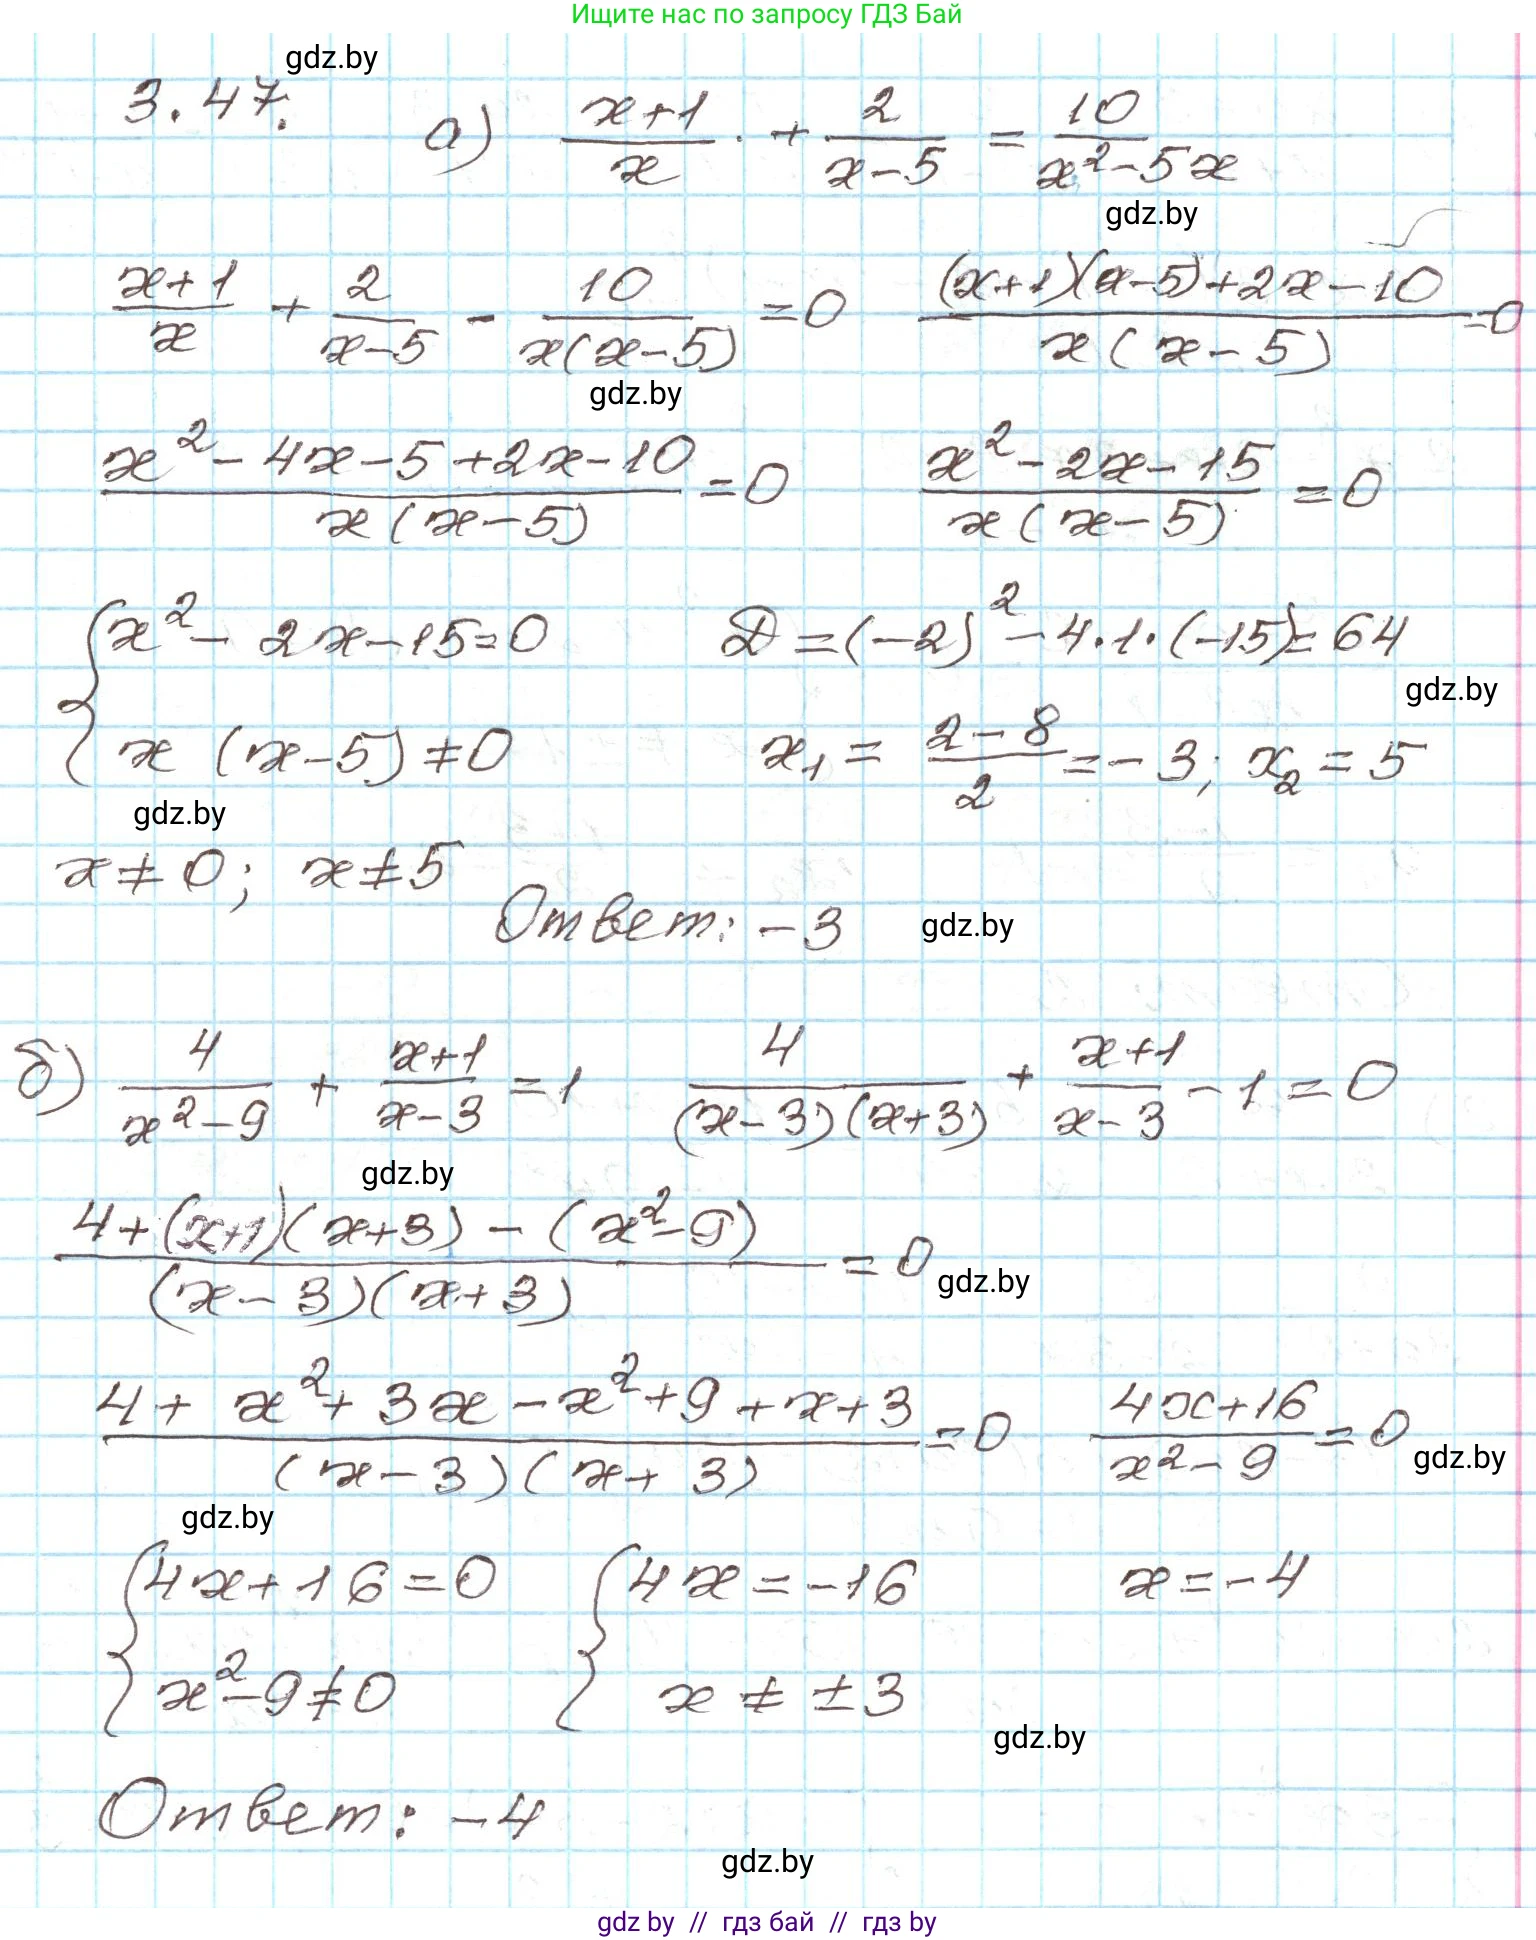 Ищите нас по запросу ГДЗ Бай
gdz.by
3.47. а) (x+1)/x + 2/(x-5) = 10/(x²-5x)
gdz.by
(x+1)/x + 2/(x-5) - 10/(x(x-5)) = 0   ((x+1)(x-5)+2x-10)/(x(x-5)) = 0
gdz.by
(x²-4x-5+2x-10)/(x(x-5)) = 0   (x²-2x-15)/(x(x-5)) = 0
{ x²-2x-15=0   D=(-2)²-4·1·(-15)=64
gdz.by
x(x-5)≠0   x₁ = (2-8)/2 = -3; x₂ = 5
gdz.by
x≠0; x≠5
Ответ: -3 gdz.by
б) 4/(x²-9) + (x+1)/(x-3) = 1   4/((x-3)(x+3)) + (x+1)/(x-3) - 1 = 0
gdz.by
(4+(x+1)(x+3)-(x²-9))/((x-3)(x+3)) = 0 gdz.by
(4+x²+3x-x²+9+x+3)/((x-3)(x+3)) = 0   (4x+16)/(x²-9) = 0 gdz.by
gdz.by
{ 4x+16=0   { 4x=-16   x=-4
x²-9≠0   x≠±3
gdz.by
Ответ: -4
gdz.by
gdz by // гдз бай // гдз by